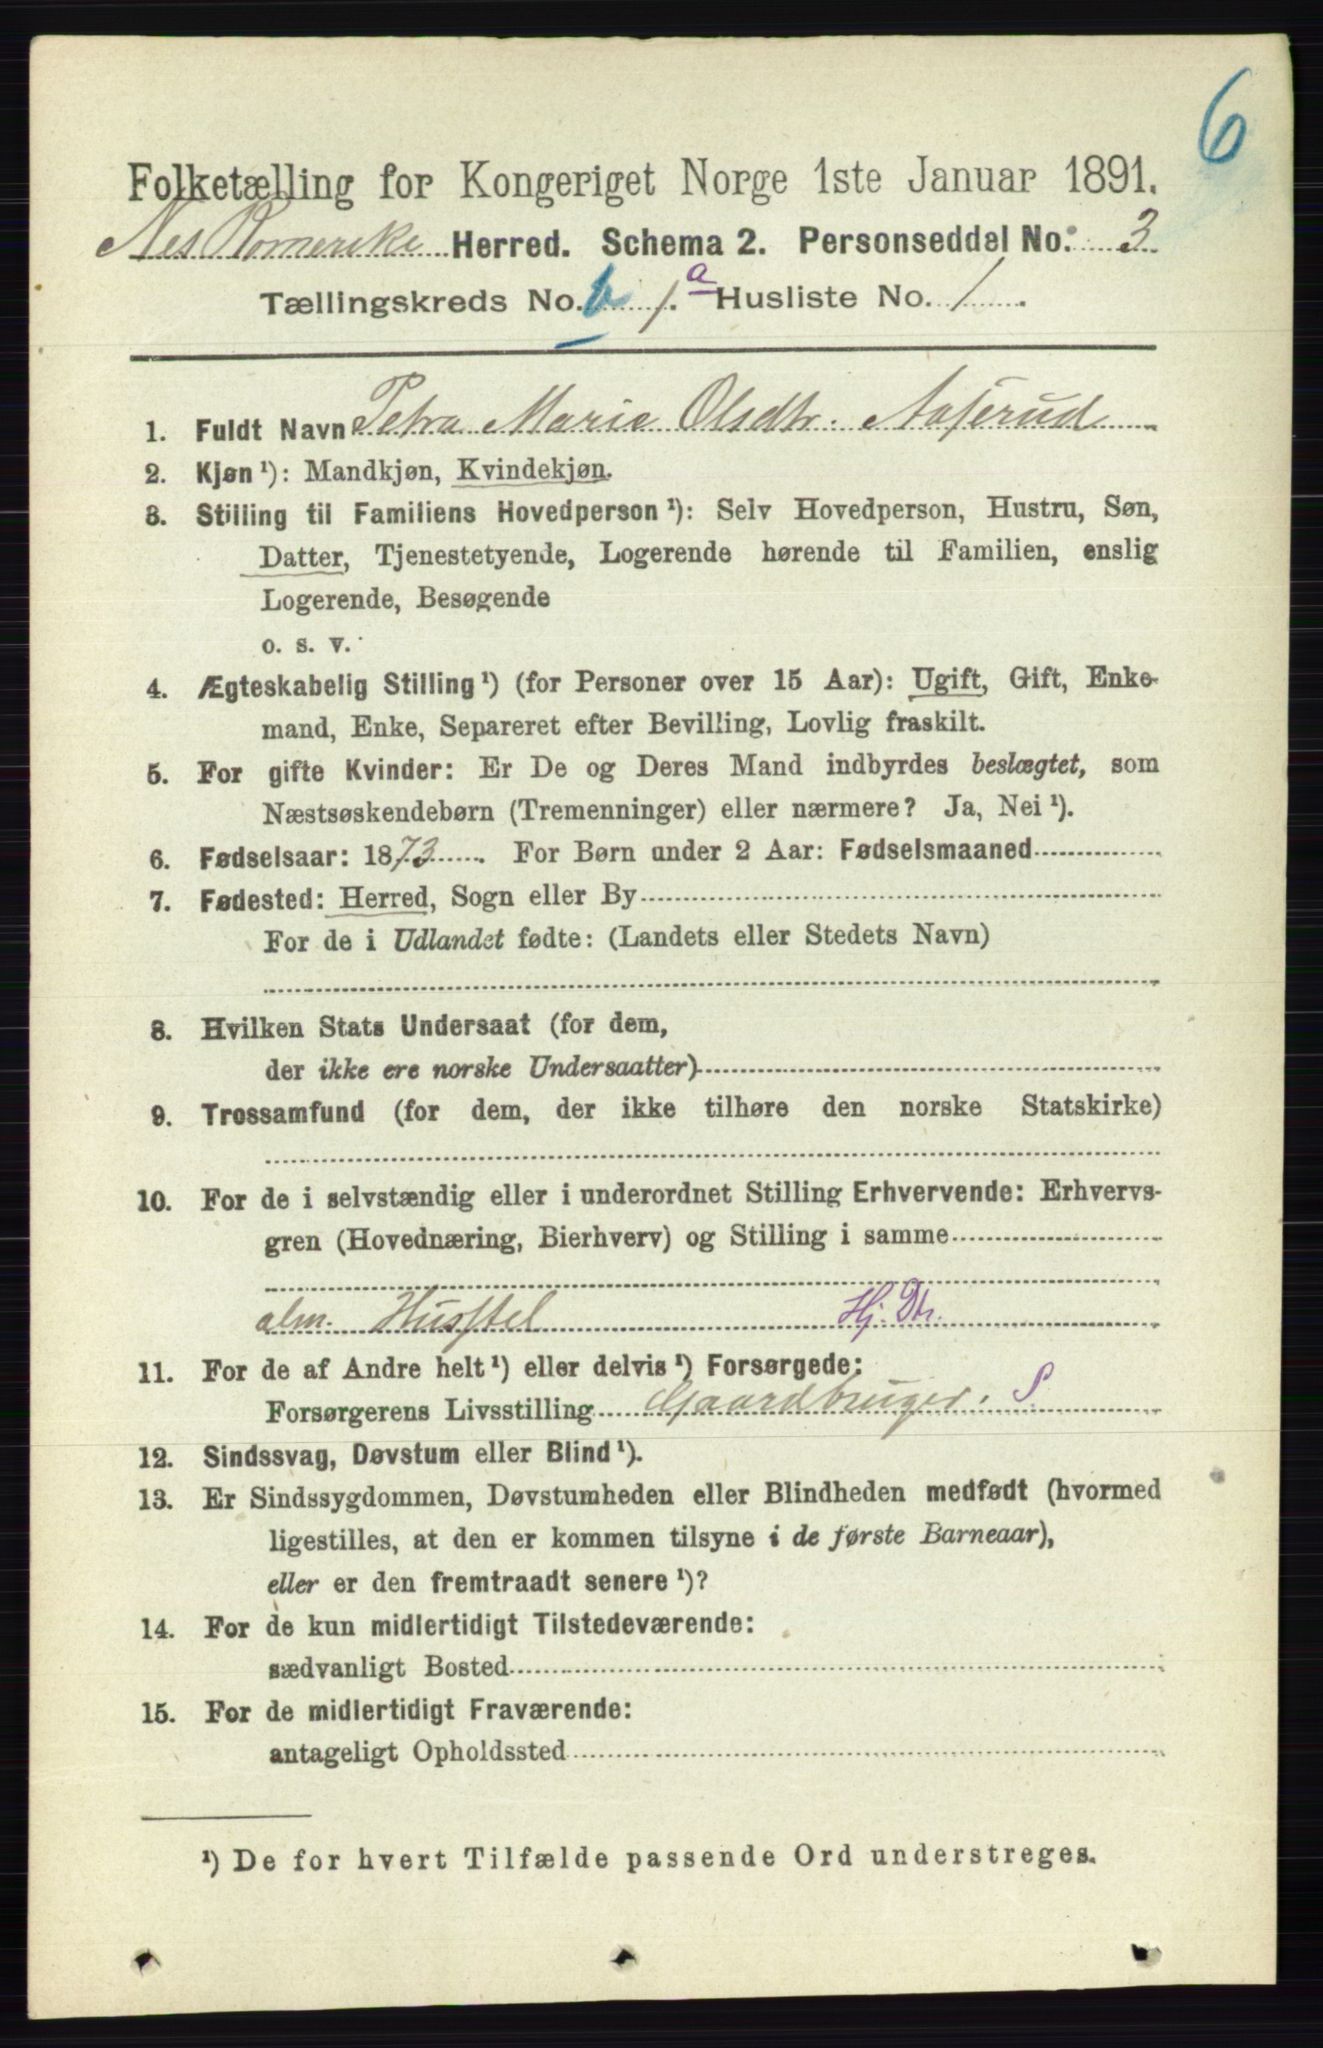 6
Folketælling for Kongeriget Norge 1ste Januar 1891.
Nes Romerike Herred. Schema 2. Personseddel No. 3
Tællingskreds No. 6 1.a Husliste No. 1.
1. Fuldt Navn Petra Marie Olsdtr. Aaserud
2. Kjøn ¹): Mandkjøn, Kvindekjøn.
3. Stilling til Familiens Hovedperson ¹): Selv Hovedperson, Hustru, Søn,
Datter, Tjenestetyende, Logerende hørende til Familien, enslig
Logerende, Besøgende
o. s. v.
4. Ægteskabelig Stilling ¹) (for Personer over 15 Aar): Ugift, Gift, Enke-
mand, Enke, Separeret efter Bevilling, Lovlig fraskilt.
5. For gifte Kvinder: Er De og Deres Mand indbyrdes beslægtet, som
Næstsøskendebørn (Tremenninger) eller nærmere? Ja, Nei ¹).
6. Fødselsaar: 1873. For Børn under 2 Aar: Fødselsmaaned
7. Fødested: Herred, Sogn eller By
For de i Udlandet fødte: (Landets eller Stedets Navn)
8. Hvilken Stats Undersaat (for dem,
der ikke ere norske Undersaatter)
9. Trossamfund (for dem, der ikke tilhøre den norske Statskirke)
10. For de i selvstændig eller i underordnet Stilling Erhvervende: Erhvervs-
gren (Hovednæring, Bierhverv) og Stilling i samme
alm. Husstel Hj. Dtr.
11. For de af Andre helt ¹) eller delvis ¹) Forsørgede:
Forsørgerens Livsstilling Gaardbruger. S.
12. Sindssvag, Døvstum eller Blind ¹).
13. Er Sindssygdommen, Døvstumheden eller Blindheden medfødt (hvormed
ligestilles, at den er kommen tilsyne i de første Barneaar),
eller er den fremtraadt senere ¹)?
14. For de kun midlertidigt Tilstedeværende:
sædvanligt Bosted
15. For de midlertidigt Fraværende:
antageligt Opholdssted
¹) De for hvert Tilfælde passende Ord understreges.